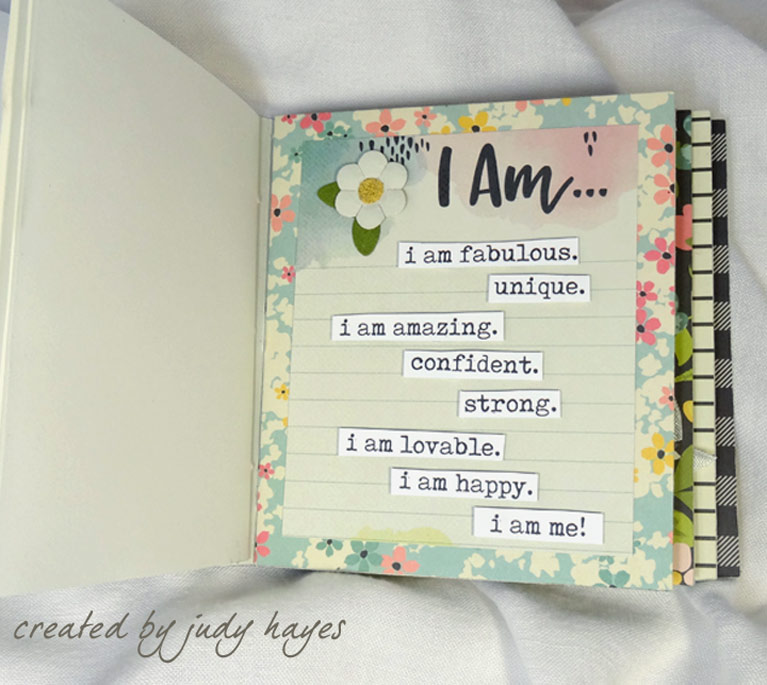 I Am...
i am fabulous.
unique.
i am amazing.
confident.
strong.
i am lovable.
i am happy.
i am me!
created by judy hayes